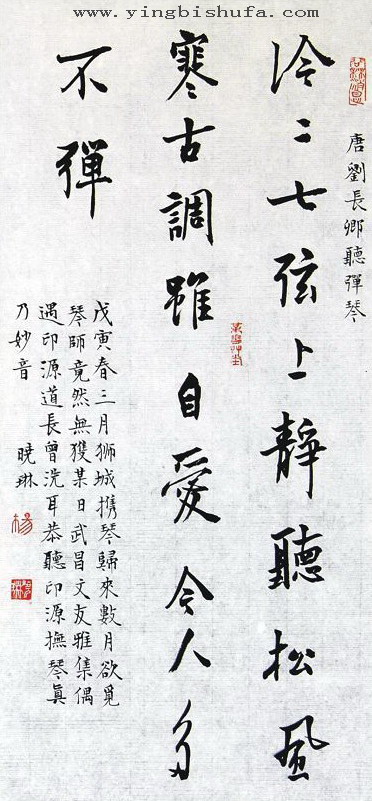 www.yingbishufa.com
唐劉長卿聽彈琴
泠〻七弦上靜聽松風
寒古調雖自愛今人多
不彈
戊寅春三月狮城攜琴歸來數月欲覓
琴師竟然無獲某日武昌文友雅集偶
遇印源道長曾洗耳恭聽印源撫琴真
乃妙音 曉琳
楊